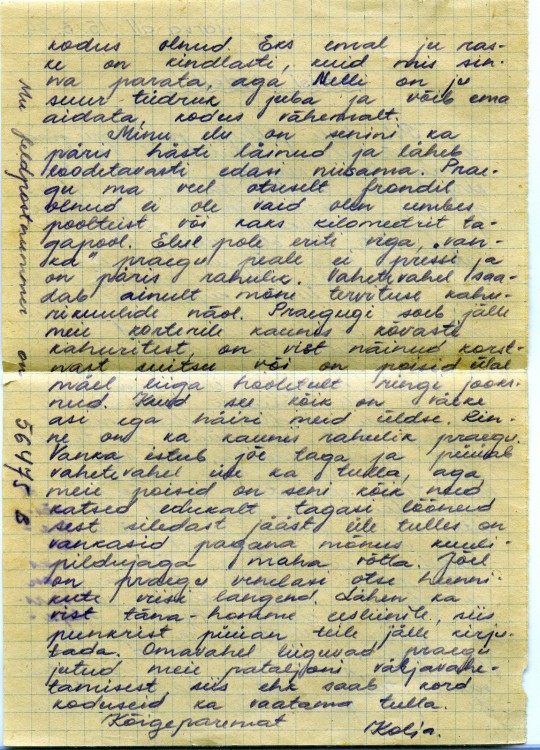 kodus olnud. Eks emal ju ras-
ke on kindlasti, kuid mis sin-
na parata, aga Nelli on ju
suur tüdruk juba ja võib ema
aidata, kodus vähemalt.
Minu elu on senini ka
päris hästi läinud ja läheb
loodetavasti edasi niisama. Prae-
gu ma veel otseselt frondil
olnud ei ole vaid olen umbes
poolteist või kaks kilomeetrit ta-
gapool. Elul pole eriti viga, „van-
ka" praegu peale ei pressi ja
on päris rahulik. Vahetevahel saa-
dab ainult mõne tervituse kahu-
rikuulide näol. Praegugi soeb jälle
meie korterile kaunis kõvasti
kahuritest, on vist näinud korst-
nast suitsu või on poisid üleval
mäel liiga hooletult ringi jooks-
nud. Kuid see kõik on väike
asi ega häiri meid üldse. Rin-
ne on ka kaunis rahulik praegu.
Vanka istub jõe taga ja püüab
vahetevahel üle ka tulla, aga
meie poisid on seni kõik need
katsed edukalt tagasi löönud
sest siledast jääst üle tulles on
vankasid pagana mõnus kuuli-
pildujaga maha võtta. Jõel
on praegu venelasi otse hunni-
kute viisi langend. Lähen ka
vist täna-homme eesliinile, siis
punkrist püüan teile jälle kirju-
tada. Omavahel liiguvad praegu
jutud meie pataljoni väljavahe-
tamisest siis ehk saab kord
koduseid ka vaatama tulla.
Kõigeparemat
Kolja.
Mu feldpostnummer on 56475 B